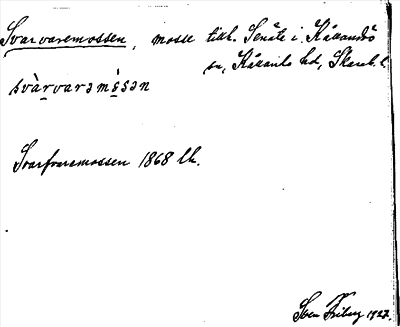 Svarvaremossen, mosse tillh. Senäte i Kållandsö
sn, Kållands hd, Skarab. l.
svàrvarəmɷ́sən
Svarfvaremossen 1868 lk.
Sven Friberg 1927.